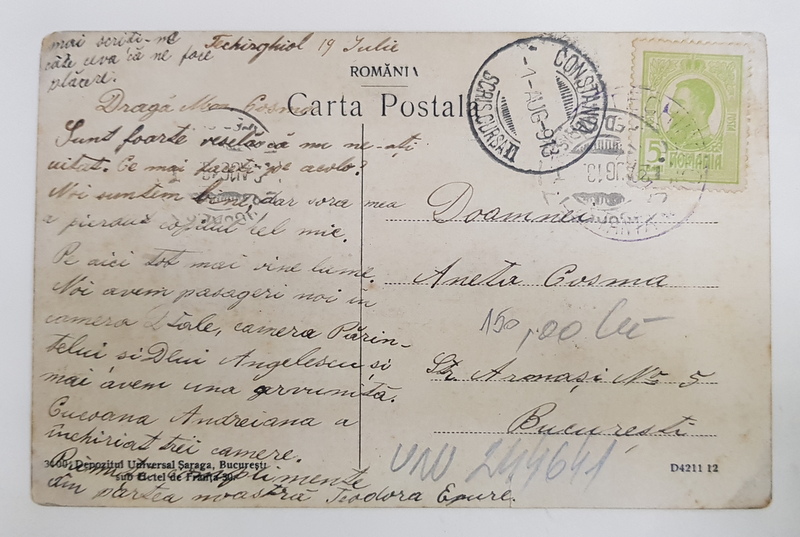 mai scriți-ne
câte ceva că ne face
plăcere.
Techirghiol 19 Iulie
ROMÂNIA
Carta Postala
Dragă M Cosma
Sunt foarte veselă că nu ne-ați
uitat. Ce mai faceți pe acolo?
Noi suntem bine, dar sora mea
a pierdut copilul cel mic.
Pe aici tot mai vine lume.
Noi avem pasageri noi în
camera Dtale, camera Părin-
telui si Dlui Angelescu și
mai avem una arvunită.
Cucoana Andreiana a
închiriat trei camere.
Primiți complimente
din partea noastră Teodora Epure.
CONSTANTA
1 AUG 913
SCRIS.CURSA II
5
ROMANIA
Doamnei
Aneta Cosma
150,00 lei
Str. Armași No 5
Bucuresti
Depozitul Universal Șaraga, București
sub Hotel de Franța
VNU 244641
D4211 12